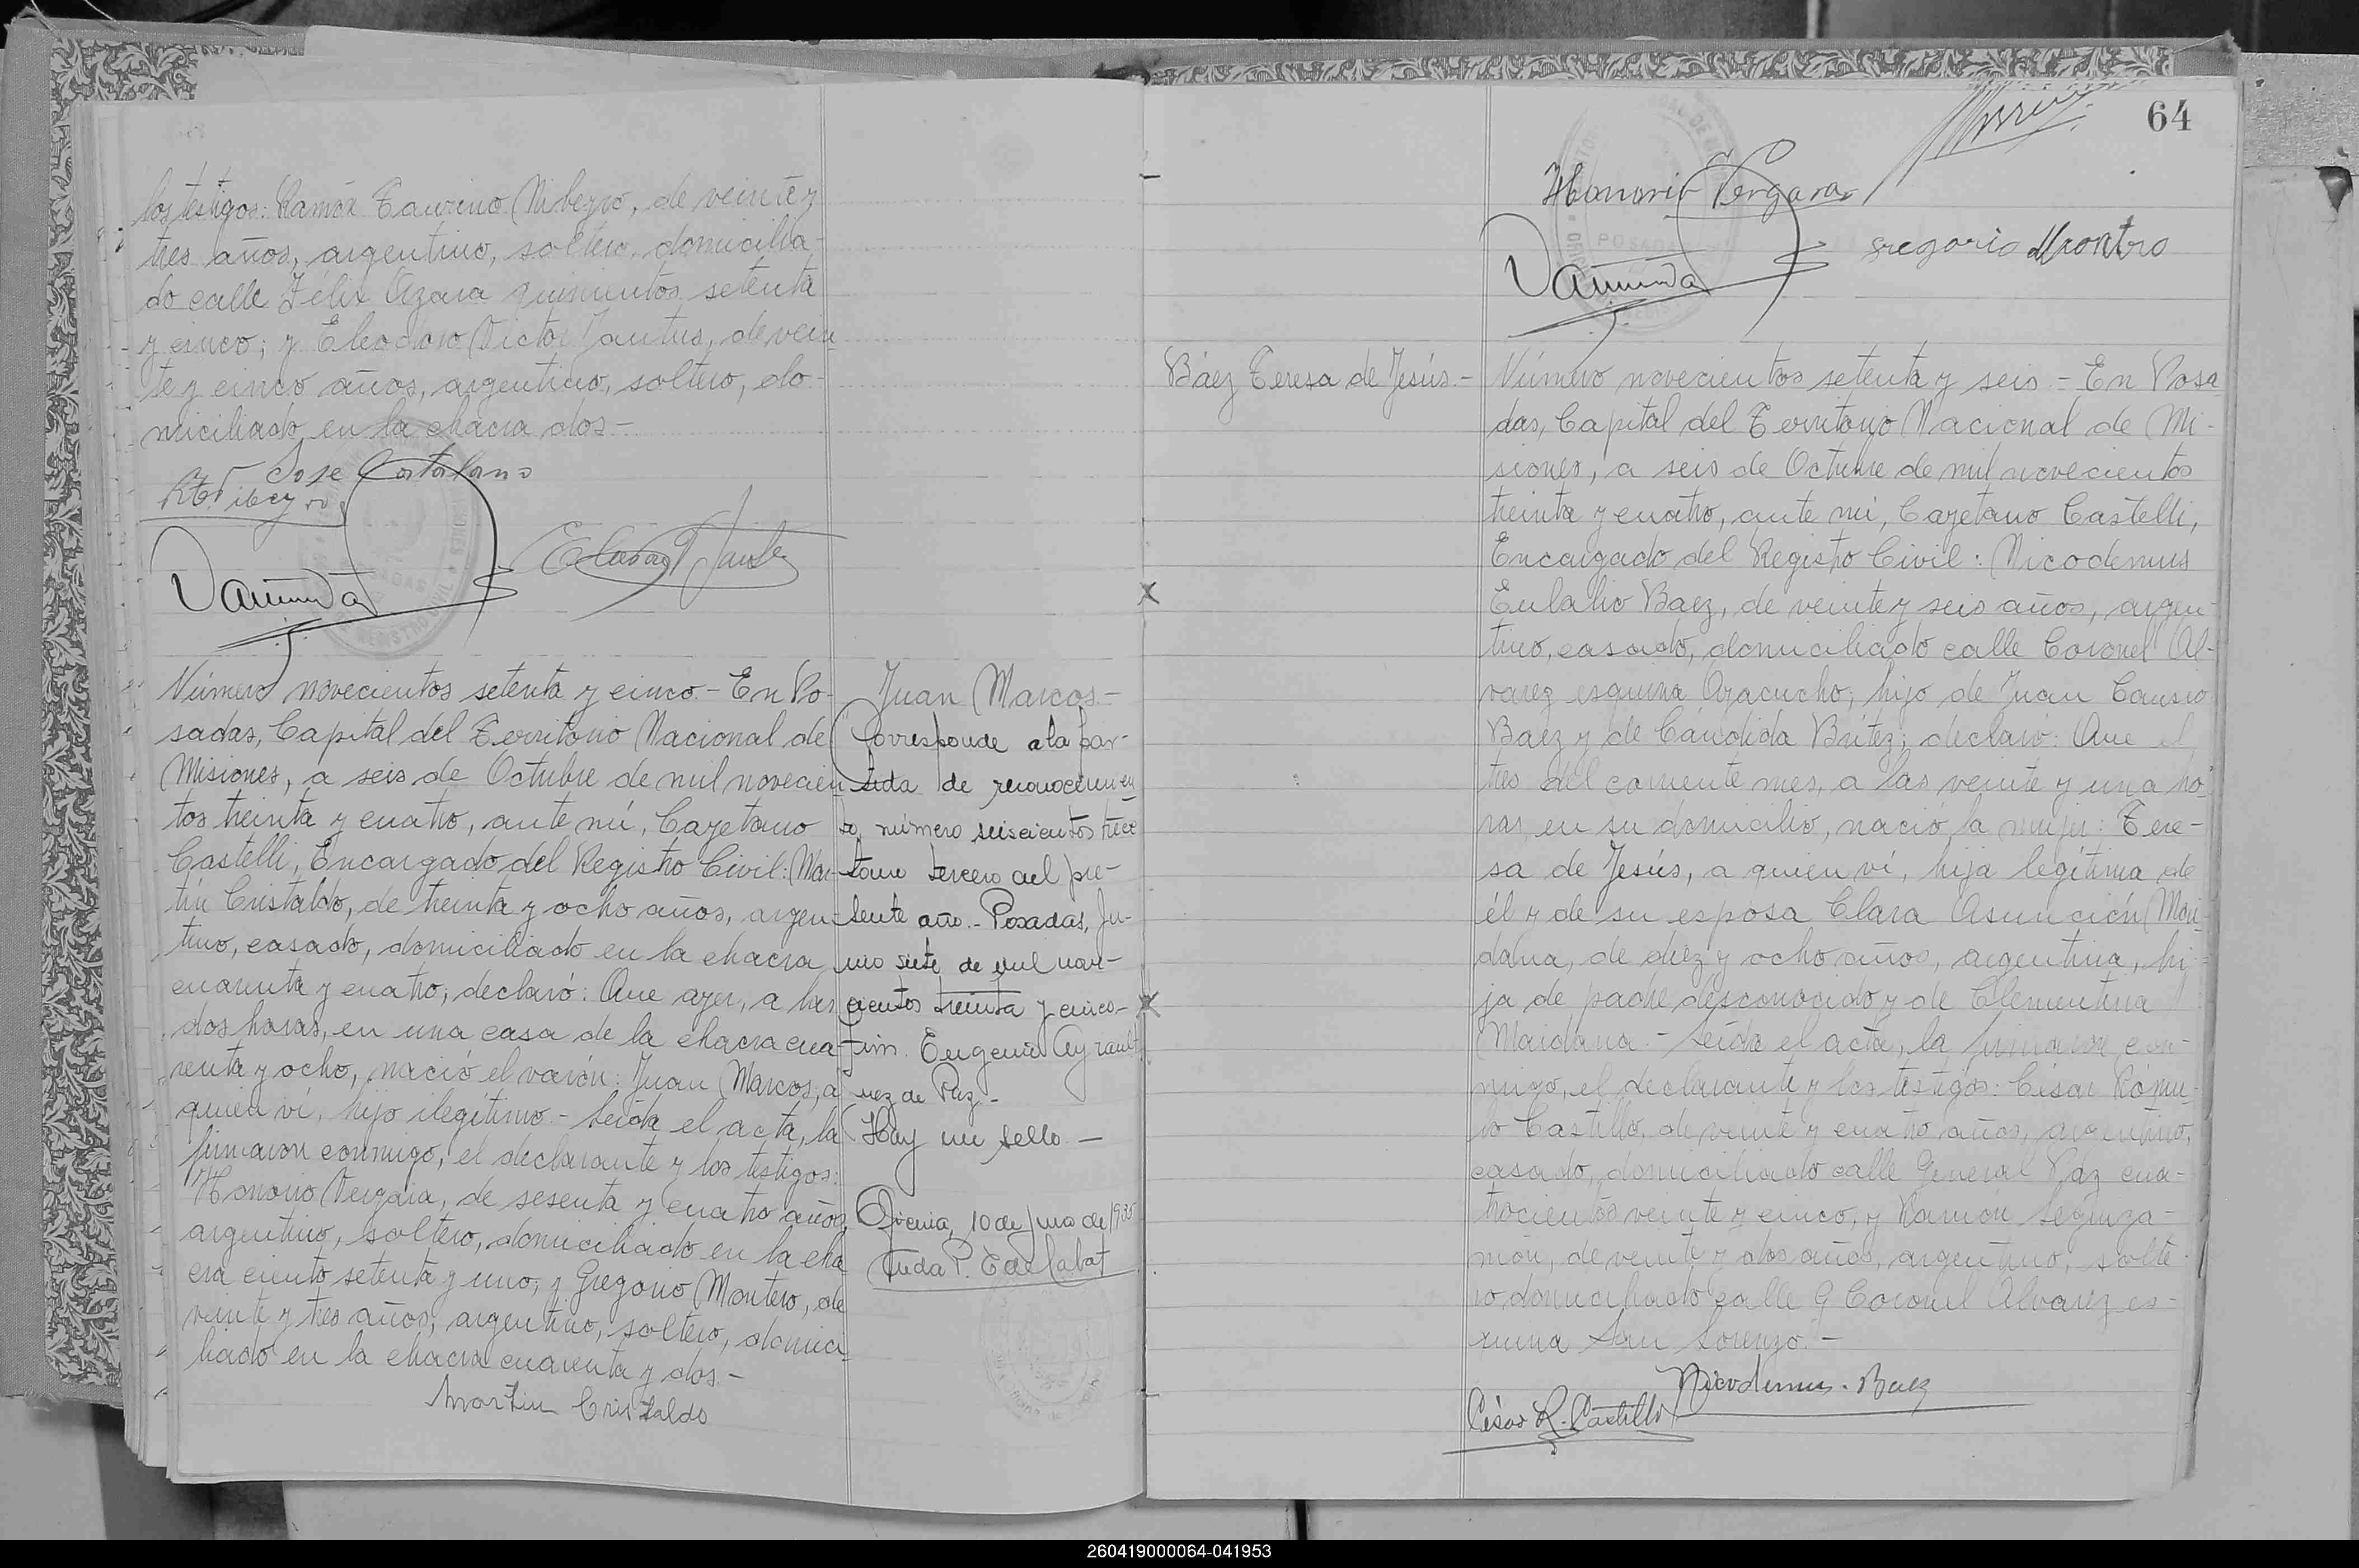 los testigos: Ramón Taurino Nibeyro, de veinte y
tres años, argentino, soltero, domicilia-
do calle Félix Azara quinientos setenta
y cinco; y Eleodoro Victor Jantus, de vein-
te y cinco años, argentino, soltero, do-
miciliado en la chacra dos.-
Jose Catalano
Número novecientos setenta y cinco.- En Po-
sadas, Capital del Territorio Nacional de
Misiones, a seis de Octubre de mil novecien
tos treinta y cuatro, ante mí, Cayetano
Castelli, Encargado del Registro Civil: Mar-
tín Cristaldo, de treinta y ocho años, argen-
tino, casado, domiciliado en la chacra
cuarenta y cuatro; declaró: Que ayer, a las
dos horas, en una casa de la chacra cua-
renta y ocho, nació el varón: Juan Marcos, a
quien ví, hijo ilegítimo.- Leída el acta, la
firmaron conmigo, el declarante y los testigos:
Honorio Vergara, de sesenta y cuatro años,
argentino, soltero, domiciliado en la cha-
cra ciento setenta y uno; y Gregorio Montero, de
veinte y tres años, argentino, soltero, domici-
liado en la chacra cuarenta y dos.-
Martin Cristaldo
Juan Marcos.-
Corresponde a la par-
tida de reconocimien
to, número seiscientos trece
tomo tercero del pre-
sente año.- Posadas, Ju-
nio siete de mil nove-
cientos treinta y cinco-
Eugenio
Juez de Paz.-
Hay un sello.-
Oficina, 10 de Junio de 1935
64
Honorio Vergara
Gregorio Montro
POSADAS
Báez Teresa de Jesús.-
Número novecientos setenta y seis - En Posa
das, Capital del Territorio Nacional de Mi-
siones, a seis de Octubre de mil novecientos
treinta y cuatro, ante mí, Cayetano Castelli,
Encargado del Registro Civil: Nicodemus
Eulalio Baez, de veinte y seis años, argen-
tino, casado, domiciliado calle Coronel Al-
varez esquina Ayacucho, hijo de Juan Causio
Baez y de Cándida Brítez; declaró: Que el
tres del corriente mes, a las veinte y una ho-
ras, en su domicilio, nació la mujer: Tere-
sa de Jesús, a quien ví, hija legítima de
él y de su esposa Clara Asunción Mai-
dana, de diez y ocho años, argentina, hi-
ja de padre desconocido y de Clementina
Maidana.- Leída el acta, la firmaron con-
migo, el declarante y los testigos: César Rómu-
lo Castillo, de veinte y cuatro años, argentino,
casado, domiciliado calle General Paz cua-
trocientos veinte y cinco, y Ramón
de veinte y dos años, argentino, solte-
ro, domiciliado calle Coronel Alvarez es-
quina San Lorenzo.-
Nicodemus. Baez
César R. Castillo
260419000064-041953